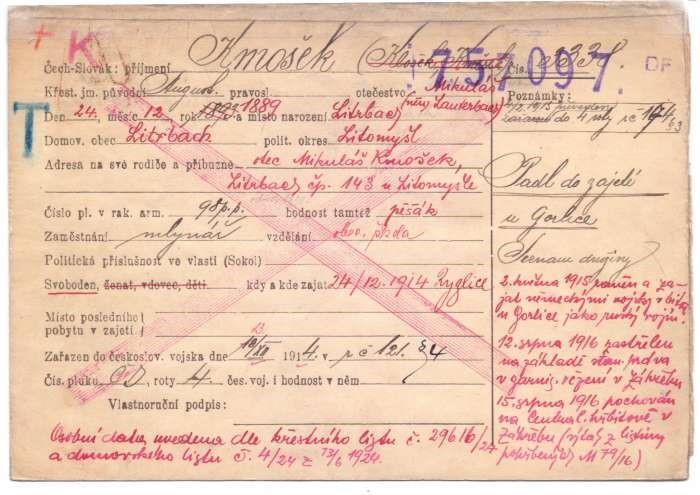 + K Kmošek 757097. DF
T
Čech-Slovák: příjmení Čís.
Křest. jm. původní August pravosl. otečestvo Mikuláš
Poznámky:
Den 24. měsíc 12, rok 1889 a místo narození Litrbach (nyní Lauterbach)
zařazen do 4 roty
Domov. obec Litrbach polit. okres Litomyšl
Adresa na své rodiče a příbuzné otec Mikuláš Kmošek,
Litrbach čp. 143 u Litomyšle
Padl do zajetí
u Gorlice
Číslo pl. v rak. arm. 98 p.p. hodnost tamtéž pěšák
Zaměstnání mlynář vzdělání
Seznam družiny
Politická příslušnost ve vlasti (Sokol)
Svoboden, ženat, vdovec, děti. kdy a kde zajat 24/12. 1914 Zyglice
2. května 1915 raněn a za-
jat německými vojsky v bitvě
u Gorlice jako ruský vojín.
Místo posledního
pobytu v zajetí
12. srpna 1916 zastřelen
na základě stan. práva
v garnis. vězení v Záhřebu
Zařazen do českoslov. vojska dne 13/XII 1914. r č 121 §4
Čís. pluku roty 4 čes. voj. i hodnost v něm
15. srpna 1916 pochován
na Central. hřbitově v
Záhřebu (výtah z listiny
pohřbených M 79/16)
Vlastnoruční podpis:
Osobní data uvedena dle křestního listu č. 29616/24
a domovského listu č. 4/24 z 13/6 1924.